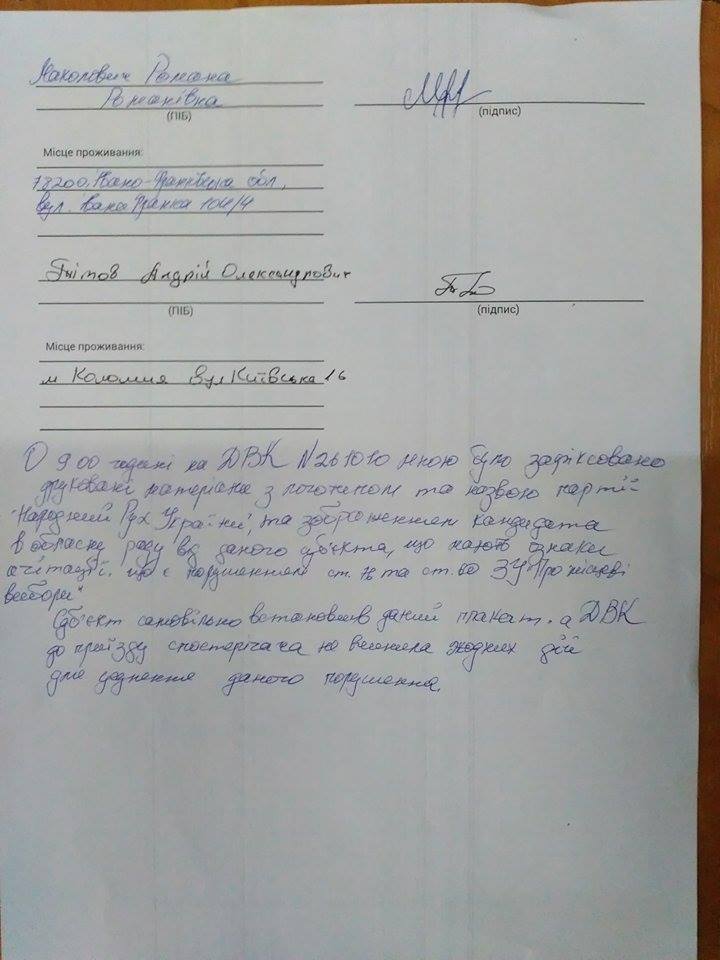 Романа
Романівна
(ПІБ)
(підпис)
Місце проживання:
78200, Івано-Франківська обл.,
вул. Івана Франка 104/4
Андрій Олександрович
(ПІБ)
(підпис)
Місце проживання:
м Коломия Вул Київська 16
О 9 00 годині на ДВК N261010 мною було зафіксовано
друковані матеріали з логотипом та назвою партії
"Народний Рух України", та зображенням кандидата
в обласну раду від даного суб'єкта, що мають ознаки
агітації. що є порушенням ст. та ст. 60 ЗУ "Про місцеві
вибори"
Суб'єкт самовільно встановив даний плакат. а ДВК
до приїзду спостерігача не вчинила жодних дій
для усунення даного порушення.